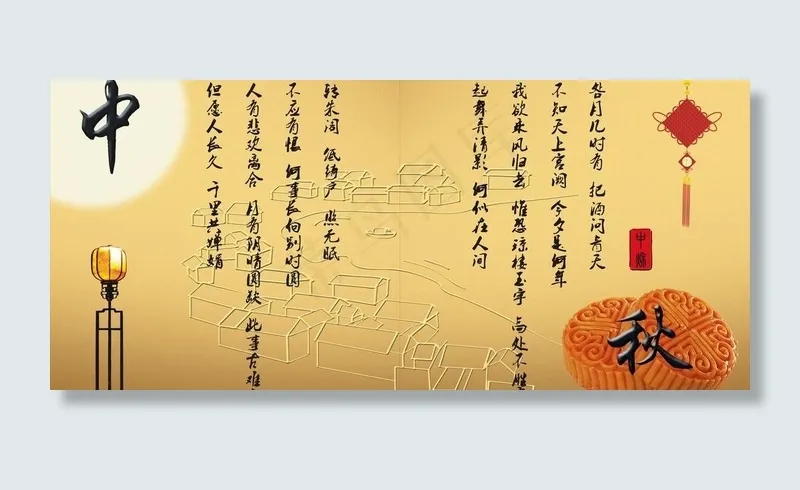 中
秋
中秋
明月几时有 把酒问青天
不知天上宫阙 今夕是何年
我欲乘风归去 惟恐琼楼玉宇 高处不胜
起舞弄清影 何似在人间
转朱阁 低绮户 照无眠
不应有恨 何事长向别时圆
人有悲欢离合 月有阴晴圆缺 此事古难
但愿人长久 千里共婵娟